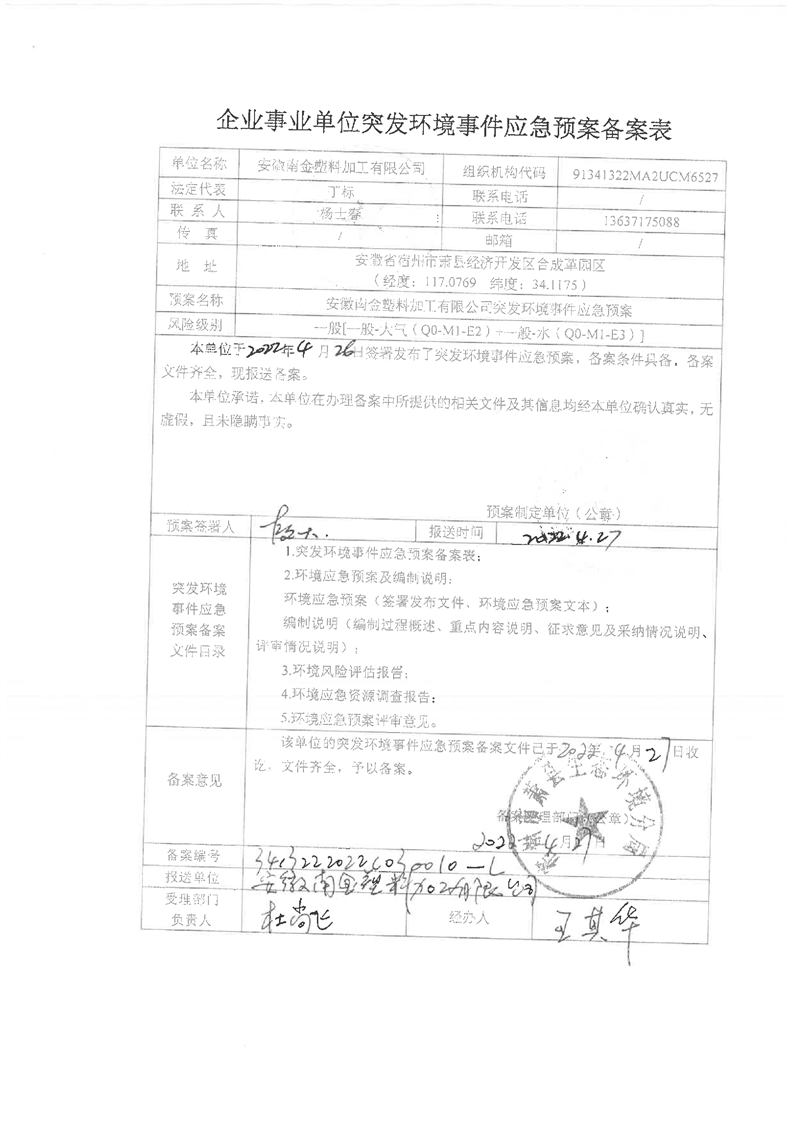 企业事业单位突发环境事件应急预案备案表
单位名称 安徽南金塑料加工有限公司 组织机构代码 91341322MA2UCM6527
法定代表 丁标 联系电话 /
联系人 杨士馨 联系电话 13637175088
传真 / 邮箱 /
地址 安徽省宿州市萧县经济开发区合成革园区
（经度：117.0769 纬度：34.1175）
预案名称 安徽南金塑料加工有限公司突发环境事件应急预案
风险级别 一般[一般-大气（Q0-M1-E2）+一般-水（Q0-M1-E3）]
本单位于2022年4月26日签署发布了突发环境事件应急预案，备案条件具备，备案
文件齐全，现报送备案。
本单位承诺，本单位在办理备案中所提供的相关文件及其信息均经本单位确认真实，无
虚假，且未隐瞒事实。
预案制定单位（公章）
预案签署人 报送时间 2022.4.27
突发环境
事件应急
预案备案
文件目录
1.突发环境事件应急预案备案表；
2.环境应急预案及编制说明：
环境应急预案（签署发布文件、环境应急预案文本）；
编制说明（编制过程概述、重点内容说明、征求意见及采纳情况说明、
评审情况说明）；
3.环境风险评估报告；
4.环境应急资源调查报告；
5.环境应急预案评审意见。
备案意见
该单位的突发环境事件应急预案备案文件已于2022年4月27日收
讫，文件齐全，予以备案。
备案受理部门（公章）
2022年4月27日
萧县生态环境分局
备案编号 3413222022C030010-L
报送单位 安徽南金塑料加工有限公司
受理部门
负责人 杜尚飞 经办人 王其华